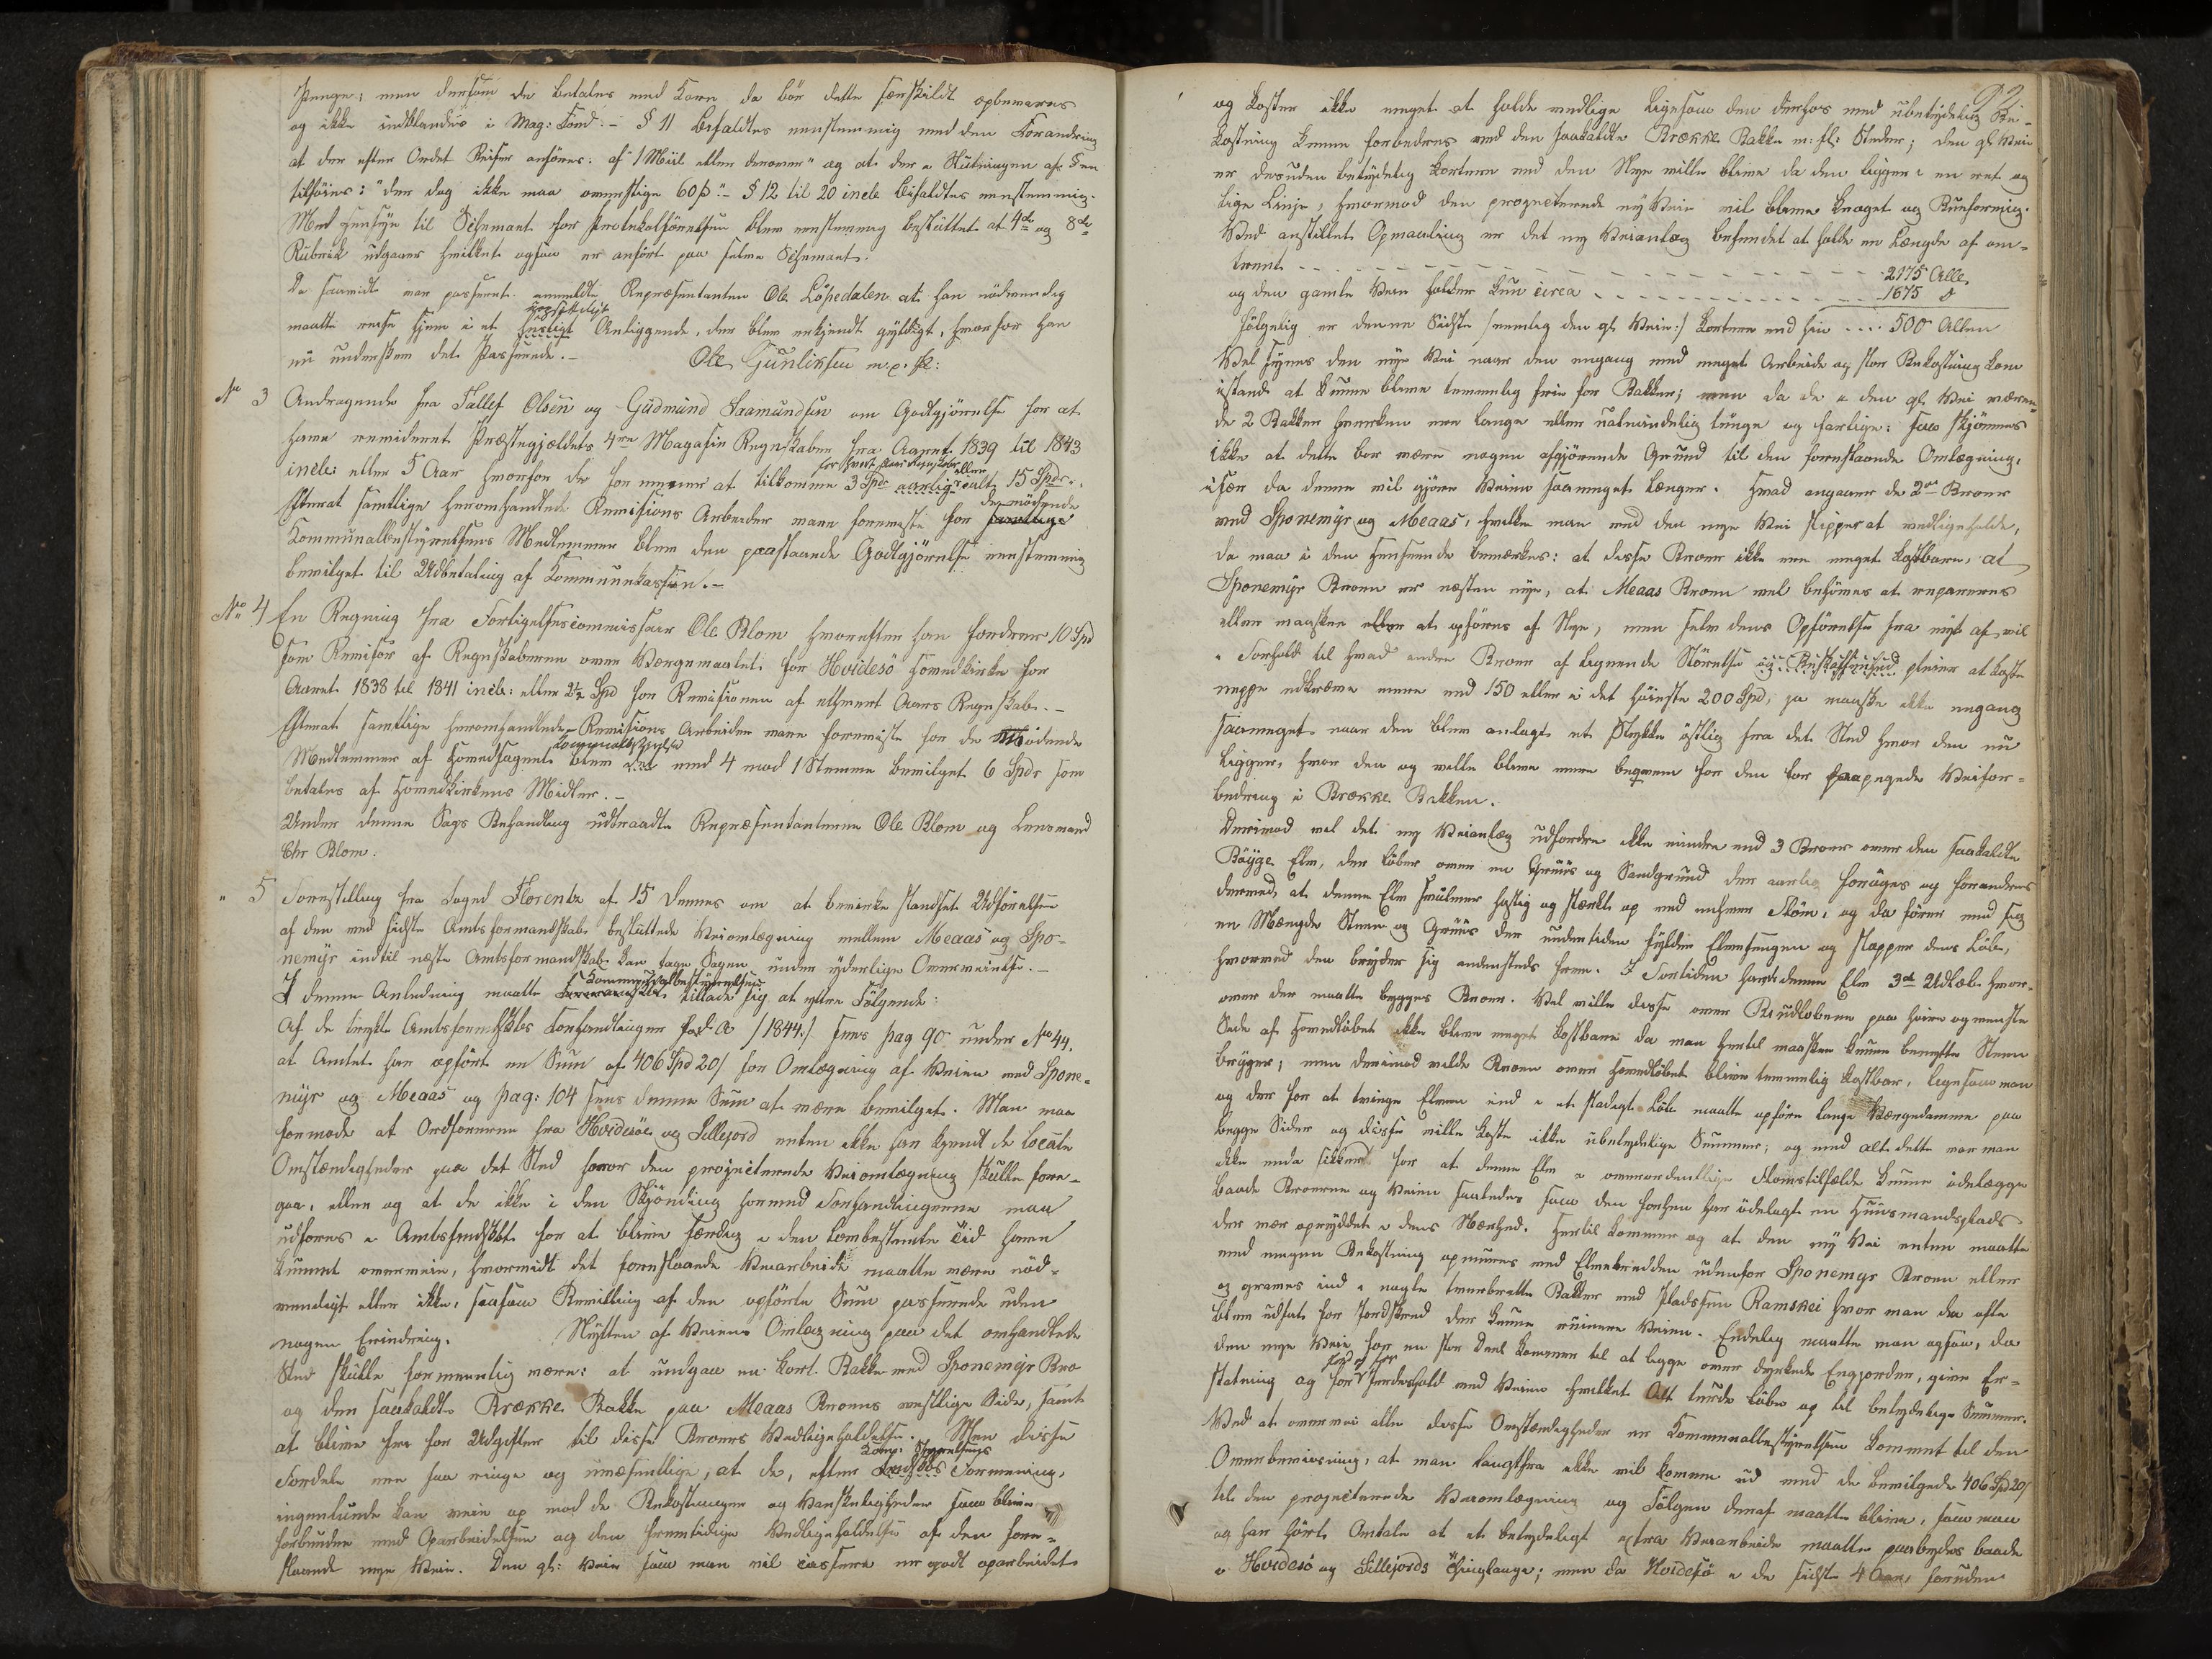 Penge; men dersom de betales med Korn da bör dette særskildt opbevares
og ikke indblandes i Mag: Fond. – § 11 bifaldtes eenstemmig med den Forandring
at der efter Ordet Reiser anföres: af "1 Miil eller derover" og at der i Slutningen af §en
tilföies: "der dog ikke maa overstige 60 β" – § 12 til 20 incl: bifaldtes eenstemmig.
Med Hensyn til Schemaet for Protokolförelsen blev eenstemmig besluttet at 4de og 8de
Rubrik udgaaer hvilket ogsaa er anfört paa selve Schemaet.
Da saavidt var passeret anmeldte Repræsentanten Ole Löpedalen at han nödvendig
maatte reise hjem i et Anliggende, der blev erkjendt gyldigt, hvorfor han
nu underskrev det Passerede. – Ole Gunliksen m. p. P:
No 3 Andragende fra Tallef Olsen og Gudmund Saamundsen om Godtgjörelse for at
have revideret Præstegjældets 4re Magasin Regnskaber fra Aaret 1839 til 1843
incl: eller 5 Aar hvorfor de formener at tilkomme 3 Spd aarlig eller ialt 15 Spdr.
for hvert Aars Regnskab
Efterat samtlige heromhandlede Revisions Arbeider vare foreviste for de mödende
Kommunalbestyrelsens Medlemmer blev den paastaaede Godtgjörelse eenstemmig
bevilget til Udbetaling af Kommunekassen. –
No 4 En Regning fra Forligelsescommissair Ole Blom hvorefter han fordrer 10 Spd
som Revisor af Regnskaberne over Værgemaalet for Hvidesö Hovedkirke for
Aaret 1838 til 1841 incl: eller 2½ Spd for Revisionen af ethvert Aars Regnskab. –
Efterat samtlige heromhandlede Revisions Arbeider vare foreviste for de Mödende
Medlemmer af Hovedsognet blev det med 4 mod 1 Stemme bevilget 6 Spdr som
betales af Hovedkirkens Midler. –
Under denne Sags Behandling udtraadte Repræsentanterne Ole Blom og Lensmand
Chr Blom.
" 5 Forestilling fra Foged Florentz af 15 dennes om at bevirke standset Udförelsen
af den ved sidste Amtsformandskab besluttede Veiomlægning mellem Meaas og Spo-
nemyr indtil næste Amtsformandskab kan tage Sagen under yderligere Overveielse. –
I denne Anledning maatte Kommunalbestyrelsen tillade sig at yttre Fölgende:
Af de trykte Amtsformskbs Forhandlinger for d: A: /1844:/ sees pag 90 under No 44,
at Amtet har opfört en Sum af 406 Spd 20 β for Omlægning af Veien ved Spone-
myr og Meaas og pag: 104 sees denne Sum at være bevilget. Man maa
formode at Ordförerne fra Hvidesöe og Sillejord enten ikke har kjendt de locale
Omstændigheder paa det Sted hvor den projecterede Veiomlægning skulle fore-
gaa, eller og at de ikke i den Skynding hvormed Forhandlingerne maa
udföres i Amtsfmdskbt for at blive færdig i den lovbestemte Tid have
kunnet overveie, hvorvidt det forestaaende Veiarbeide maatte være nöd-
vendigt eller ikke, saasom Bevilling af den opförte Sum passerede uden
nogen Erindring. Nytten af Veiens Omlægning paa det omhandlede
Sted skulle formeentlig være: at undgaa en kort Bakke ved Sponemyr Bro
og den saakaldte Brække Bakke paa Meaas Broens vestlige Side, samt
at blive fri for Udgifter til disse Broers Vedligeholdelse. Men disse
Fordele ere saa ringe og uvæsentlige, at de, efter Kom: Bestyrelsens Formening,
ingenlunde kan veie op mod de Bekostninger og Vanskeligheder som bliver
forbunden med Oparbeidelsen og den fremtidige Vedligeholdelse af den fore-
slaaede nye Vei. Den gl: Vei som man vil cassere er godt oparbeidet
og koster ikke meget at holde vedlige ligesom den derhos med ubetydelig Be-
kostning kunne forbedres ved den saakaldte Brække Bakke m: fl: Steder; den gl Vei
er desuden betydelig kortere end den Nye ville blive da den ligger i en ret og
lige Linje, hvormod den projecterede ny Vei vil blive kroget og bueformig.
Ved anstillet Opmaaling er det ny Veianlæg befundet at holde en Længde af om-
trent – – – – 2175 Alle.
og den gamle Vei holder kun circa – – – – 1675 "
fölgelig er denne Sidste /nemlig den gl Vei:/ kortere end hiin .... 500 Allen
Vel synes den nye Vei naar den engang med meget Arbeide og stor Bekostning kom
istand at kunne blive temmelig frie for Bakker; men da de i den gl Vei væren-
de 2 Bakker hverken ere lange eller ualmindelig tunge og farlige: saa skjönnes
ikke at dette bör være nogen afgjörende Grund til den forestaaende Omlægning,
især da denne vil gjöre Veien saameget længer. Hvad angaaer de 2de Broer
ved Sponemyr og Meaas, hvilke man med den nye Vei slipper at vedligeholde,
da maa i den Henseende bemærkes: at disse Broer ikke ere meget kostbare, at
Sponemyr Broen er næsten nye, at Meaas Broen vel behöves at repareres
eller maaskee at opföres af Nye, men selv dens Opförelse fra nyt af, vil
i Forhold til hvad andre Broer af lignende Störrelse og Beskaffenhed pleier at koste
neppe udkræve mere end 150 eller i det höieste 200 Spd, ja maaske ikke engang
saameget naar den blev anlagt et Stykke östlig fra det Sted hvor den nu
ligger, hvor den og ville blive mere beqvem for den for paapegede Veifor-
bedring i Brække Bakken.
Derimod vil det ny Veianlæg udfordre ikke mindre end 3 Broer over den saakaldte
Böyge Elv, der löber over en Gruus og Sandgrund der aarlig foröges og forandres
derved, at denne Elv svulmer hastig og stærkt op ved enhver Flöm, og da förer med sig
en Mængde Steen og Gruus der undertiden fylder Elvesengen og stopper dens Löb,
hvorved den bryder sig andensteds frem. I Fortiden havde denne Elv 3de Udlöb hvor-
over der maatte bygges Broer. Vel ville disse over Biudlobene paa höire og venstre
Side af Hovedlöbet ikke blive meget kostbare da man hertil maaskee kunne benytte Steen
brygger; men derimod vilde Broen over Hovedlöbet blive temmelig kostbar, ligesom man
og der for at tvinge Elven ind i et stadigt Löb maatte opföre lange Værgedamme paa
begge Sider og disse ville koste ikke ubetydelige Summer; og med alt dette var man
ikke enda sikkret for at denne Elv i overordentlige Flomstilfælde kunne ödelægge
baade Broerne og Veien saaledes som den forhen har ödelagt en Huusmandsplads
der var opryddet i dens Nærhed. Hertil kommer og at den ny Vei enten maatte
med megen Bekostning opmures ved Elvebredden udenfor Sponemyr Broen eller
og graves ind i nogle tverbratte Bakker ved Pladsen Ramskei hvor man da ofte
blev udsat for Jordskred der kunne ruinere Veien. Endelig maatte man ogsaa, da
den nye Vei for en stor Deel kommer til at ligge over dyrkede Engjorder, give Er-
statning og for Gjerdeshold ved Veien hvilket Alt turde löbe op til betydelige Summer.
Ved at overveie alle disse Omstændigheder er Kommunalbestyrelsen kommet til den
Overbeviisning, at man langtfra ikke vil komme ud med de bevilgede 406 Spd 20 β
til den projecterede Veiomlægning og Fölgen deraf maatte blive, som man
og har hört Omtale at et betydeligt extra Veiarbeide maatte paabydes baade
i Hvidesö og Sillejords Thinglauge; men da Hvidesö i de sidste 4 Aar, foruden